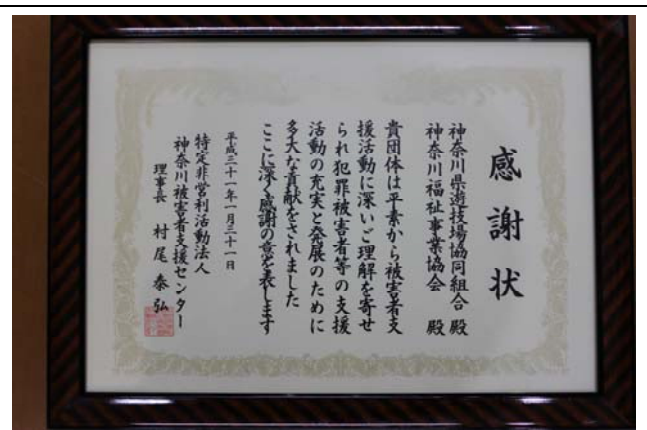 感謝状
神奈川県遊技場協同組合 殿
神奈川福祉事業協会 殿
貴団体は平素から被害者支
援活動に深いご理解を寄せ
られ犯罪被害者等の支援
活動の充実と発展のために
多大な貢献をされました
ここに深く感謝の意を表します
平成三十一年一月三十一日
特定非営利活動法人
神奈川被害者支援センター
理事長 村尾泰弘